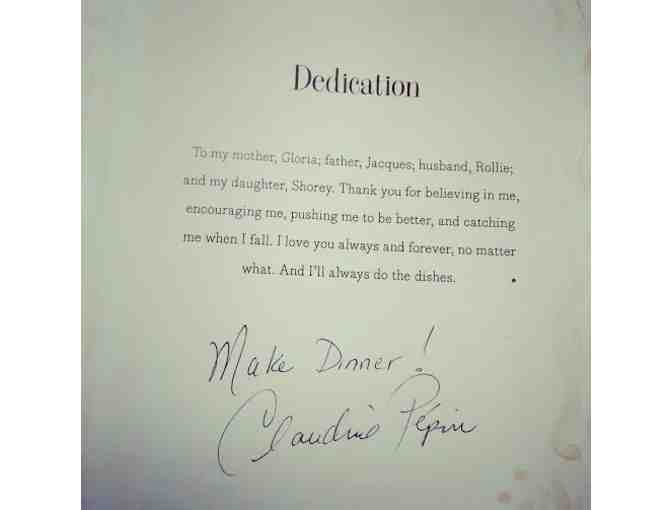 Dedication
To my mother, Gloria; father, Jacques; husband, Rollie;
and my daughter, Shorey. Thank you for believing in me,
encouraging me, pushing me to be better, and catching
me when I fall. I love you always and forever, no matter
what. And I'll always do the dishes.
Make Dinner!
Claudine Pépin